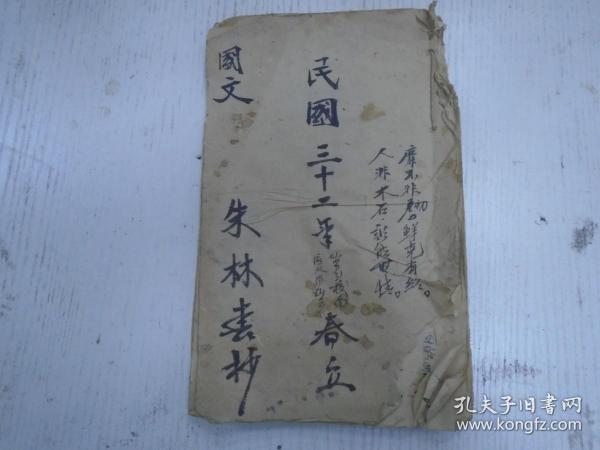 靡不非初鮮克有終。
人非木石。孰能無情。
民國三十二年
春立
國文
朱林書抄
孔夫子旧书网
www.kongfz.com